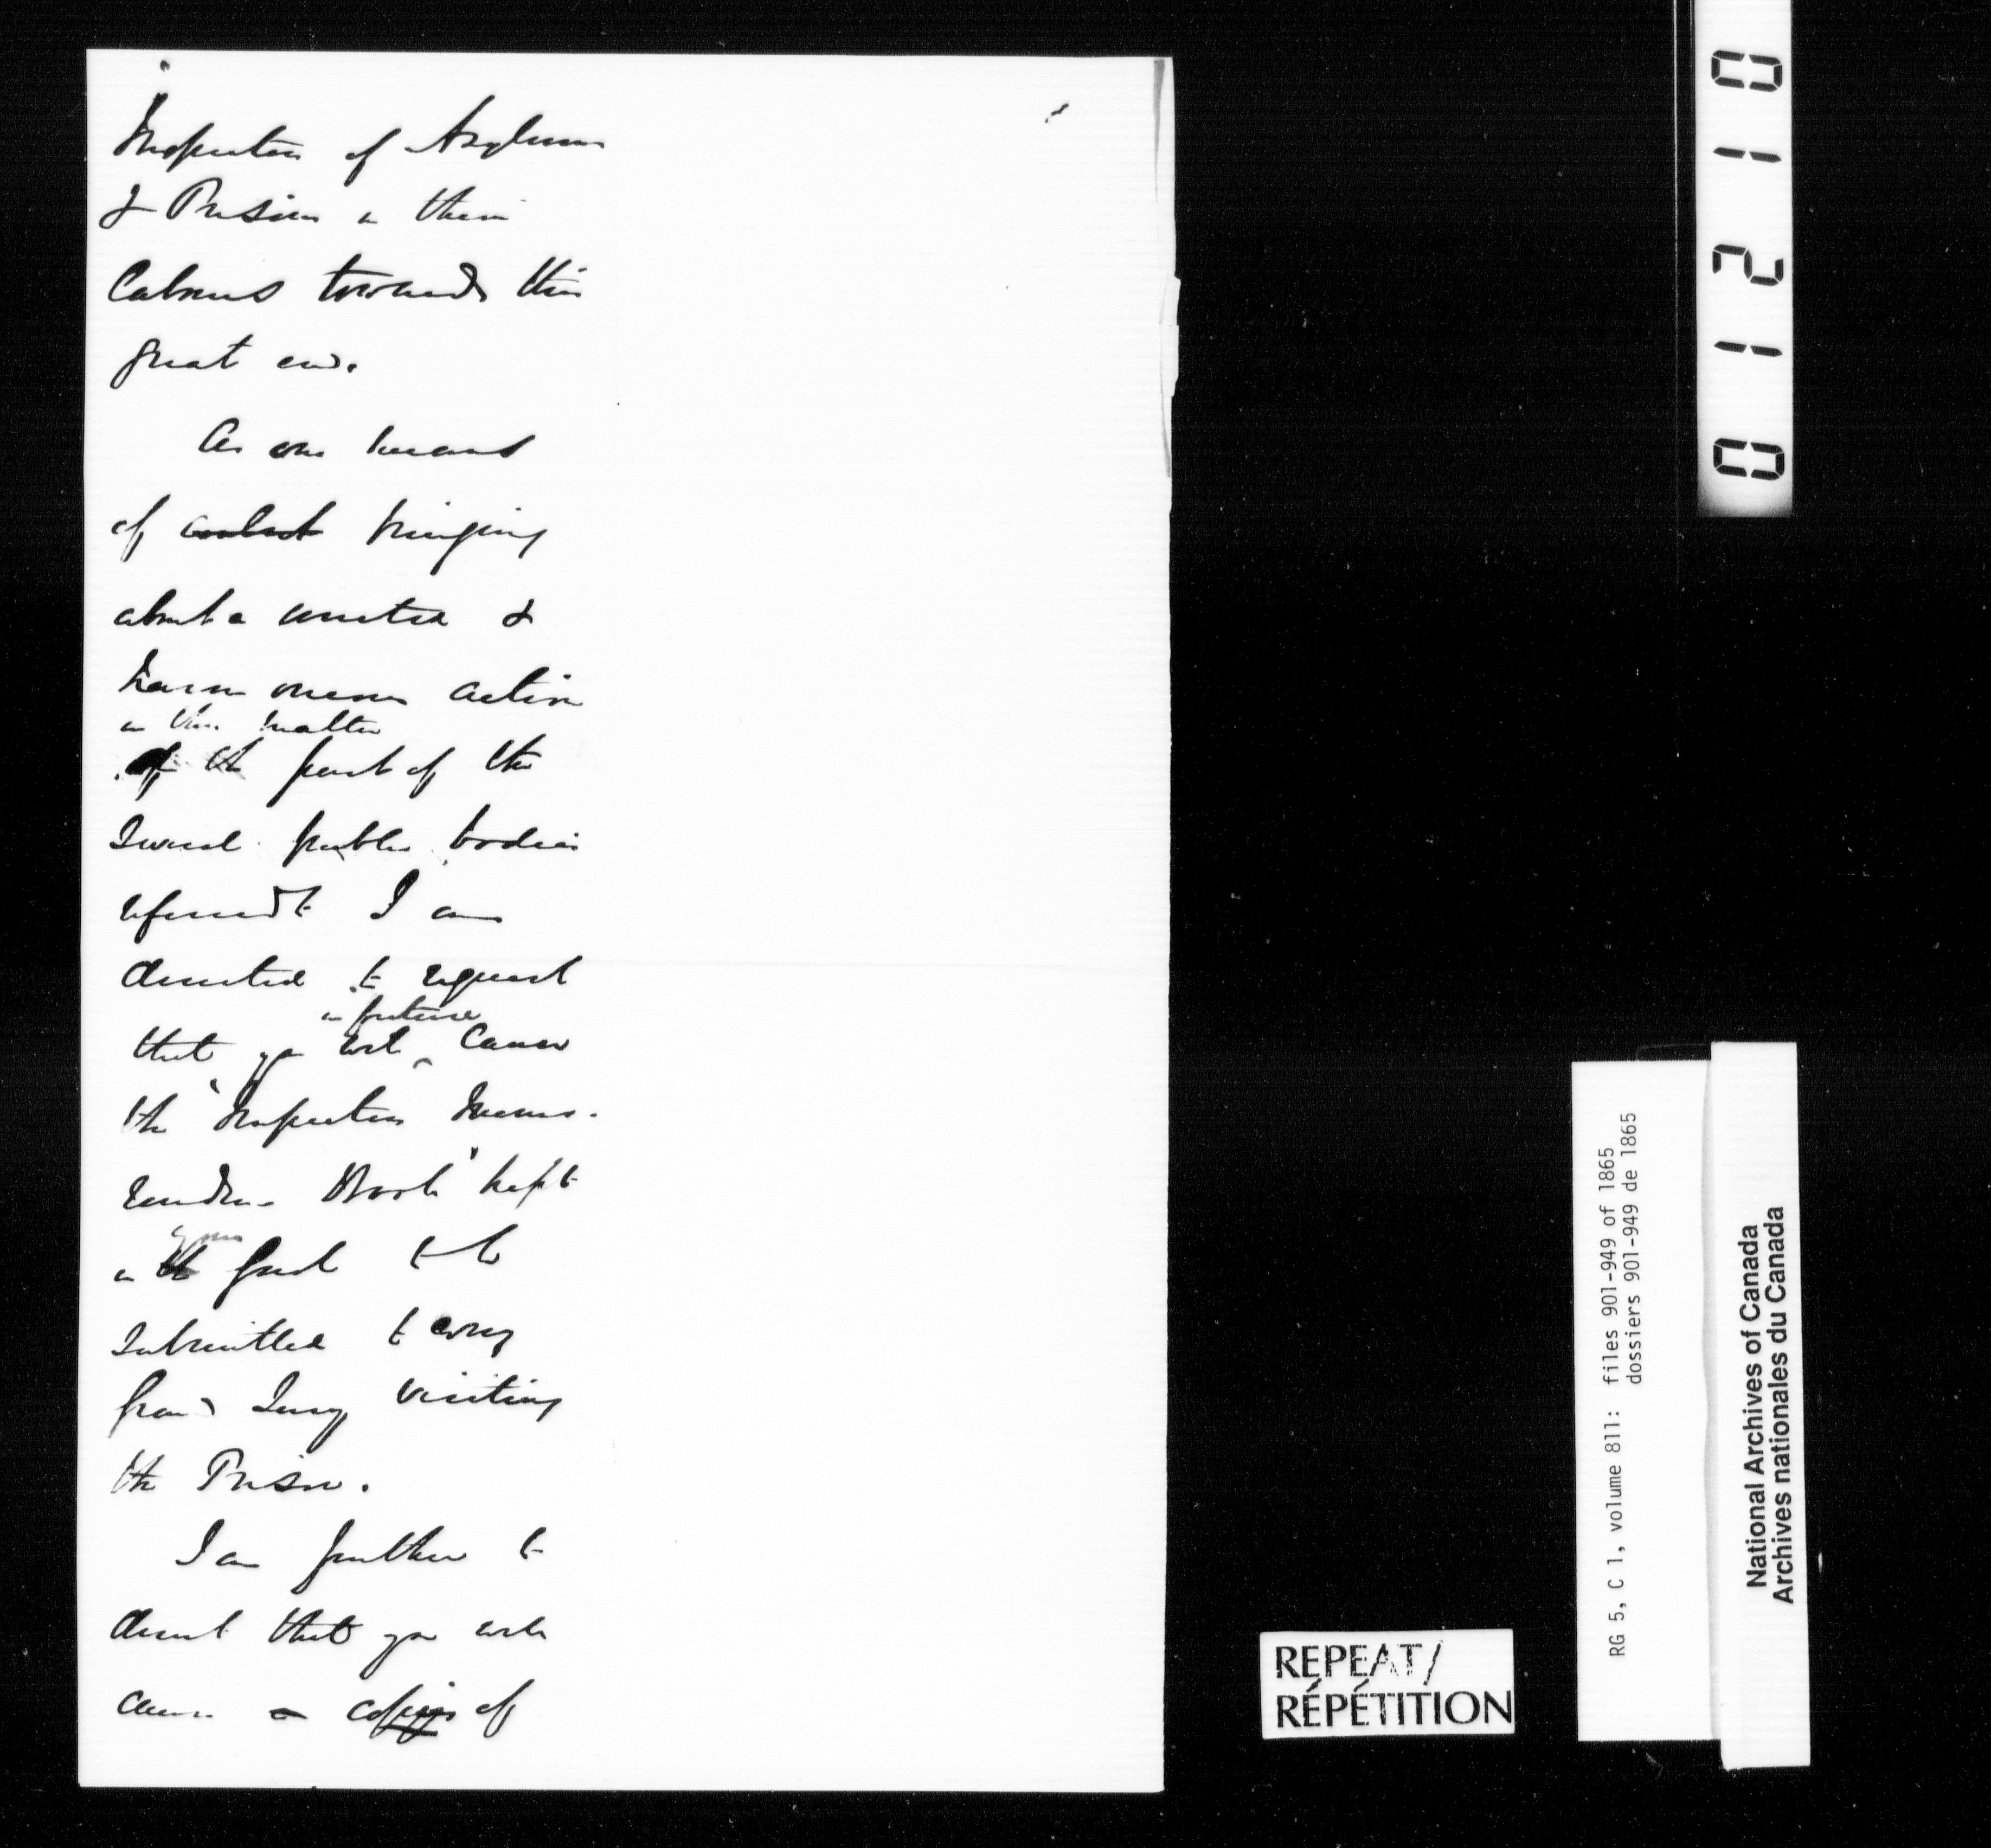 Inspectors of Asylums
& Prisons in their
labours towards this
great end.
As one means
of bringing
about a united &
harmonious action
in this matter
of the part of the
several public bodies
referred to I am
directed to request
in future
that you will cause
the "Inspectors Memo-
randum Book" kept
your
in the gaol to be
submitted to every
Grand Jury visiting
the Prison.
I am further to
direct that you will
cause a copies of
01210
REPEAT/
RÉPÉTITION
RG 5, C 1, volume 811: files 901-949 of 1865
dossiers 901-949 de 1865
National Archives of Canada
Archives nationales du Canada